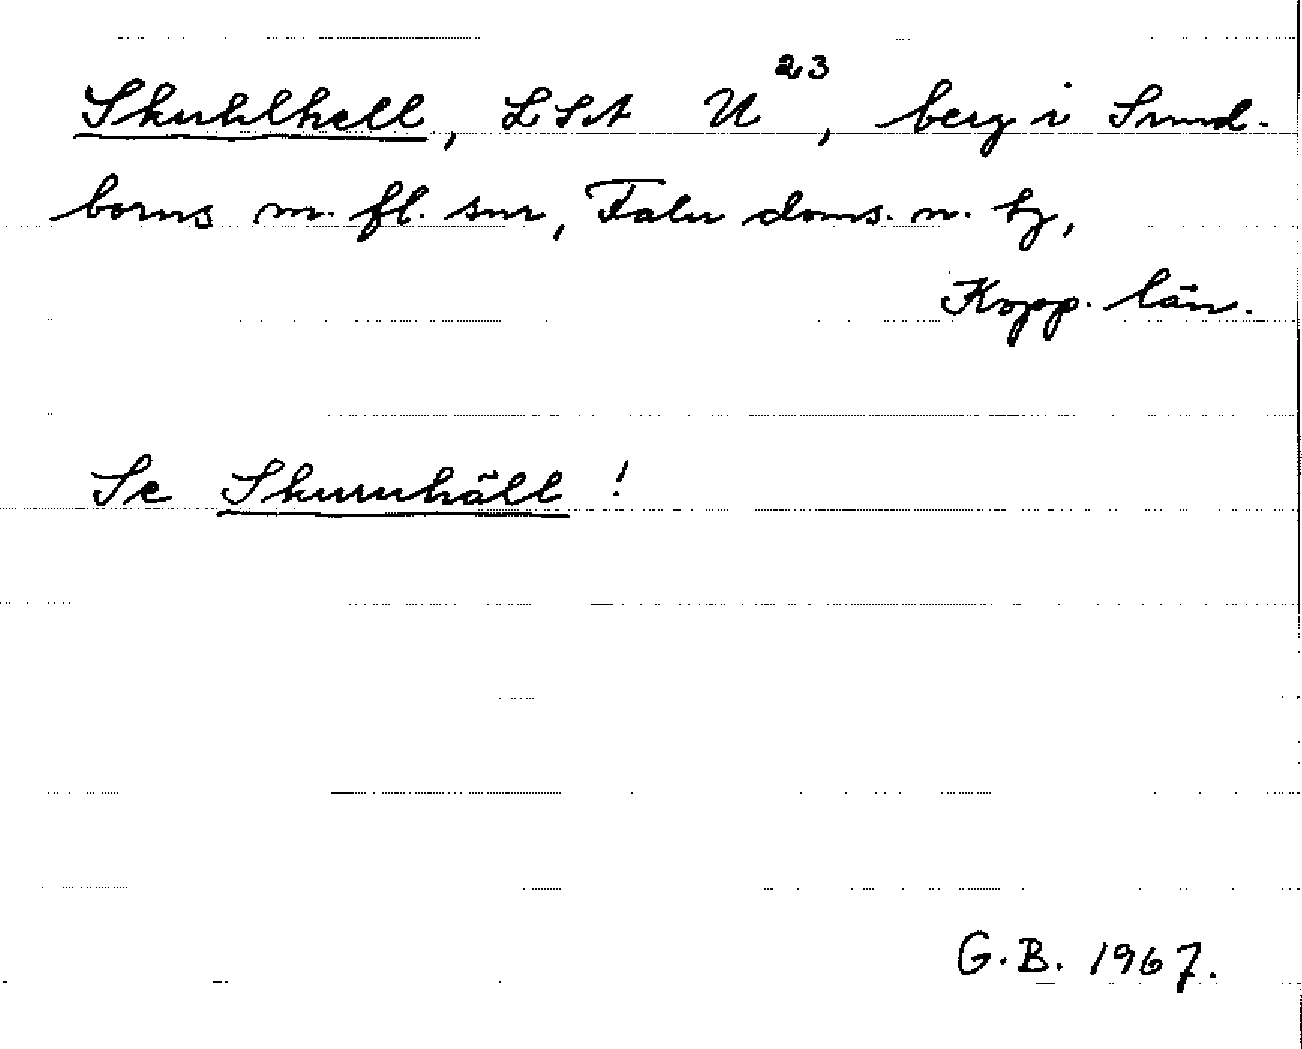 Skuhlhell, LSA U²³, berg i Sund-
borns m. fl. snr, Falu doms. n. tg,
Kopp. län.
Se Skuruhäll !
G.B. 1967.